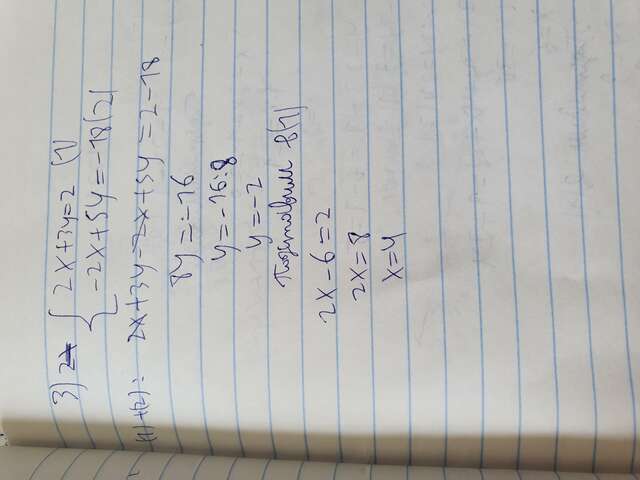 3) { 2x+3y=2 (1)
-2x+5y=-18(2)
(1)+(2): 2x+3y-2x+5y=2-18
8y=-16
y=-16:8
y=-2
Подставим в(1)
2x-6=2
2x=8
x=4